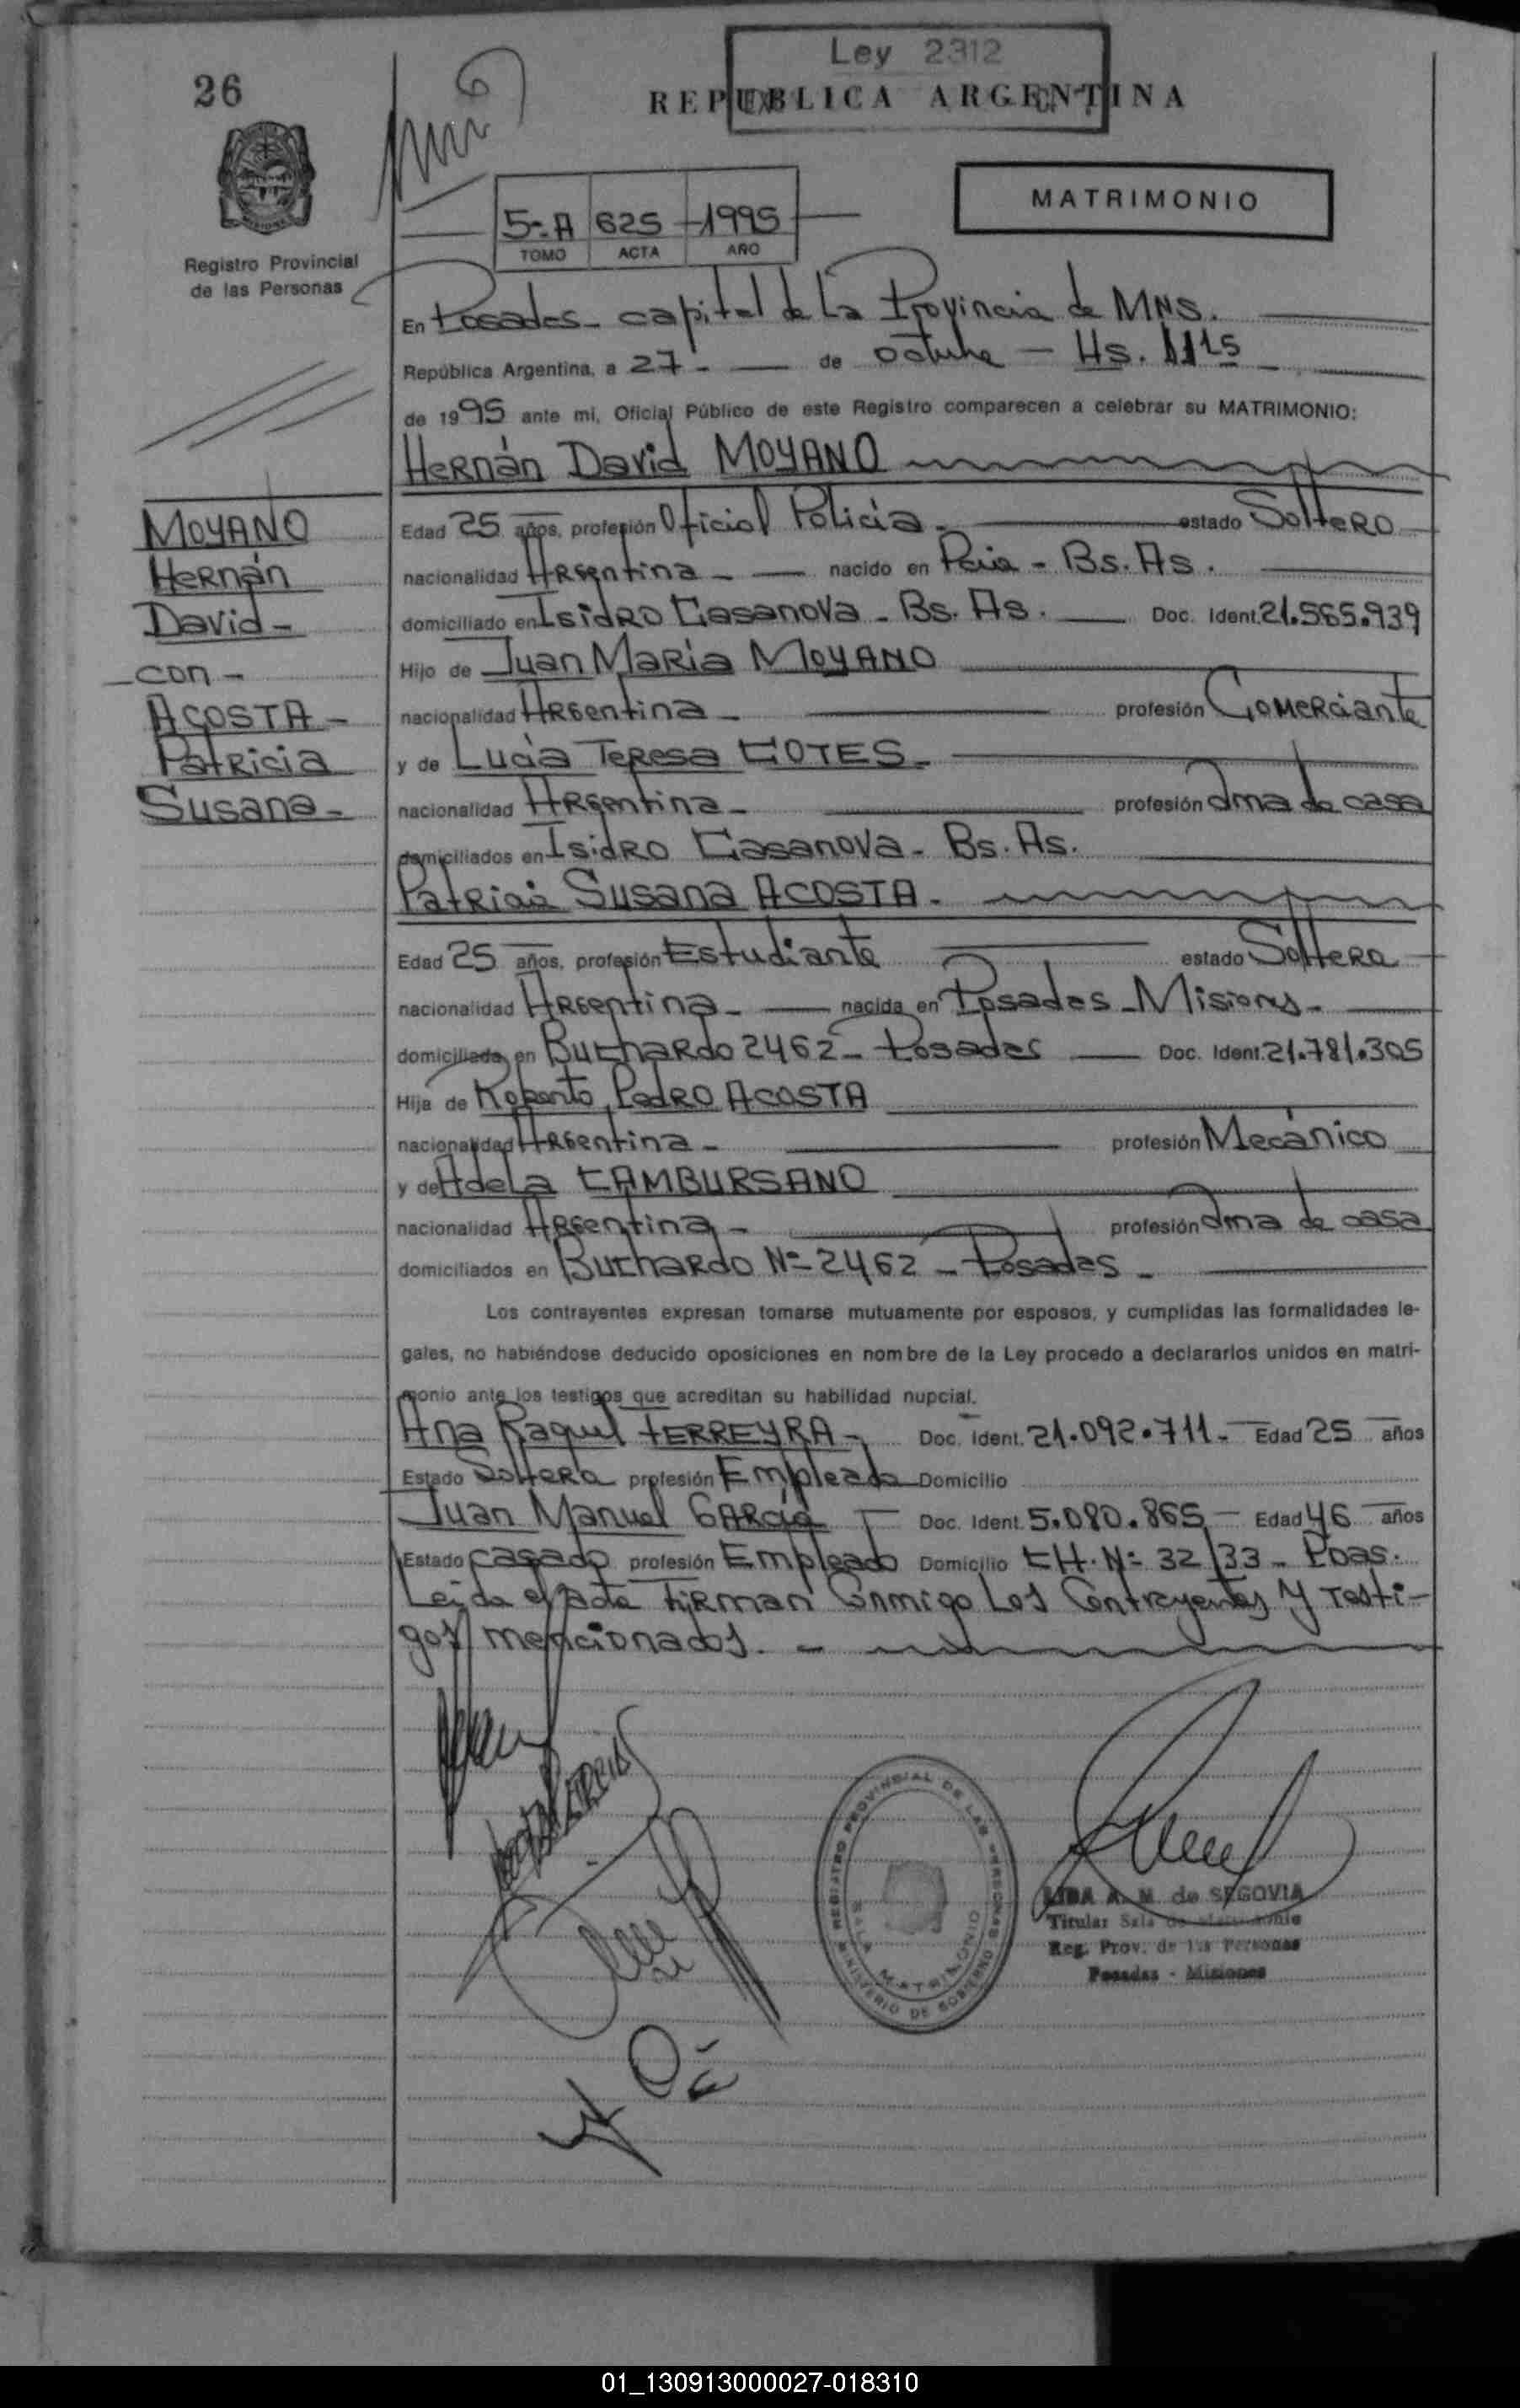 Ley 2312
26
REPUBLICA ARGENTINA
MATRIMONIO
5-A 625 1995
TOMO ACTA AÑO
Registro Provincial
de las Personas
En Posadas - capital de La Provincia de MNS.
República Argentina, a 27 - de octubre - Hs. 1115
de 1995 ante mi, Oficial Público de este Registro comparecen a celebrar su MATRIMONIO:
Hernán David MOYANO
Edad 25 años, profesión Oficial Policía - estado Soltero
nacionalidad Argentina - nacido en - Bs. As.
domiciliado en Isidro Casanova - Bs. As. Doc. Ident. 21.565.939
Hijo de Juan María MOYANO
nacionalidad Argentina - profesión Comerciante
y de Lucía Teresa COTES -
nacionalidad Argentina - profesión Ama de casa
domiciliados en Isidro Casanova - Bs. As.
Patricia Susana ACOSTA -
Edad 25 años, profesión Estudiante estado Soltera
nacionalidad Argentina - nacida en Posadas - Misiones -
domiciliada en Buchardo 2462 - Posadas Doc. Ident. 21.781.305
Hija de Roberto Pedro ACOSTA
nacionalidad Argentina - profesión Mecánico
y de Adela CAMBURSANO
nacionalidad Argentina - profesión Ama de casa
domiciliados en Buchardo Nº 2462 - Posadas -
Los contrayentes expresan tomarse mutuamente por esposos, y cumplidas las formalidades le-
gales, no habiéndose deducido oposiciones en nombre de la Ley procedo a declararlos unidos en matri-
monio ante los testigos que acreditan su habilidad nupcial.
Ana Raquel FERREYRA - Doc. Ident. 21.092.711 - Edad 25 años
Estado Soltera profesión Empleada Domicilio
Juan Manuel GARCÍA - Doc. Ident. 5.080.865 - Edad 46 años
Estado casado profesión Empleado Domicilio CH. Nº 32/33 - Pdas.
Leída el acta firman conmigo Los Contrayentes y testi-
gos mencionados. -
MOYANO
Hernán
David -
- con -
ACOSTA -
Patricia
Susana -
REGISTRO PROVINCIAL DE LAS PERSONAS
MINISTERIO DE GOBIERNO
SALA MATRIMONIO
LIDA A. M. de SEGOVIA
Titular Sala de Matrimonio
Reg. Prov. de las Personas
Posadas - Misiones
01_130913000027-018310